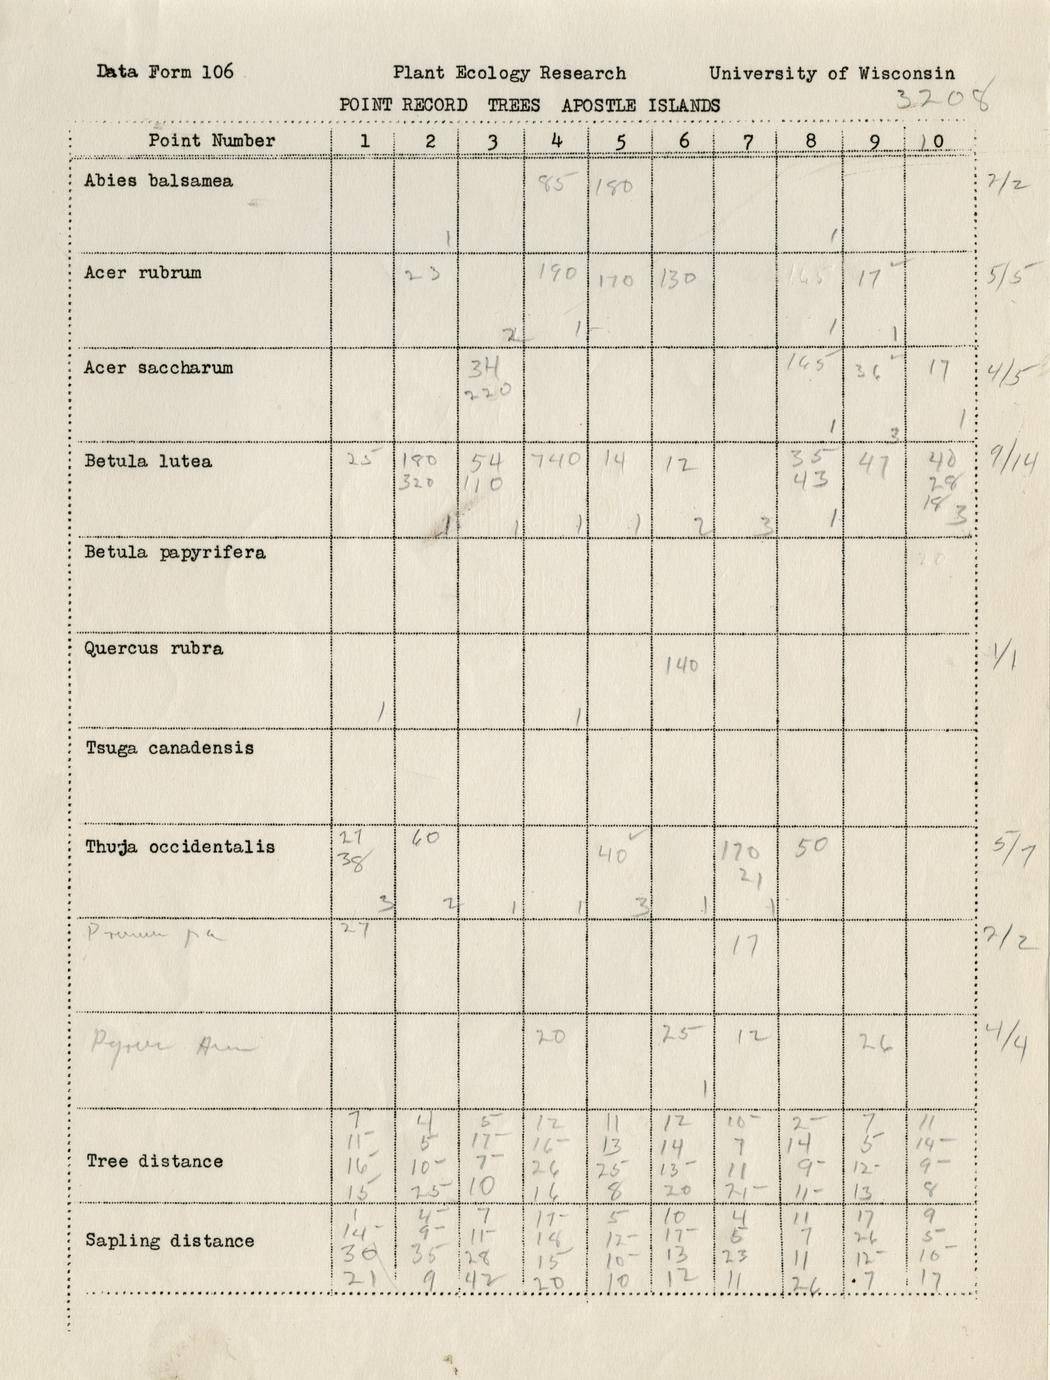 Data Form 106 Plant Ecology Research University of Wisconsin
POINT RECORD TREES APOSTLE ISLANDS 3208
Point Number 1 2 3 4 5 6 7 8 9 10
Abies balsamea 85 180 2/2
1 1
Acer rubrum 23 190 170 130 165 17 5/5
2 1 1 1
Acer saccharum 34 165 36 17 4/5
220
1 3 1
Betula lutea 25 180 54 740 14 12 35 47 40 9/14
320 110 43 28
18
1 1 1 1 2 3 1 3
Betula papyrifera
Quercus rubra 140 1/1
1 1
Tsuga canadensis
Thuja occidentalis 27 60 40 170 50 5/7
38 21
3 2 1 1 3 1 1
27 17 2/2
Pyrus 20 25 12 26 4/4
1
7 4 5 12 11 12 10- 2- 7 11
11- 5 17- 16- 13 14 7 14 5 14-
Tree distance 16 10- 7- 26 25 13- 11 9- 12- 9-
15 25 10 16 8 20 21- 11- 13 8
1 4- 7 17- 5 10 4 11 17 9
Sapling distance 14- 9- 11- 18 12- 17- 6 7 26 5-
30 35 28 15 10- 13 23 11 12- 16-
21 9 42 20 10 12 11 26 7 17